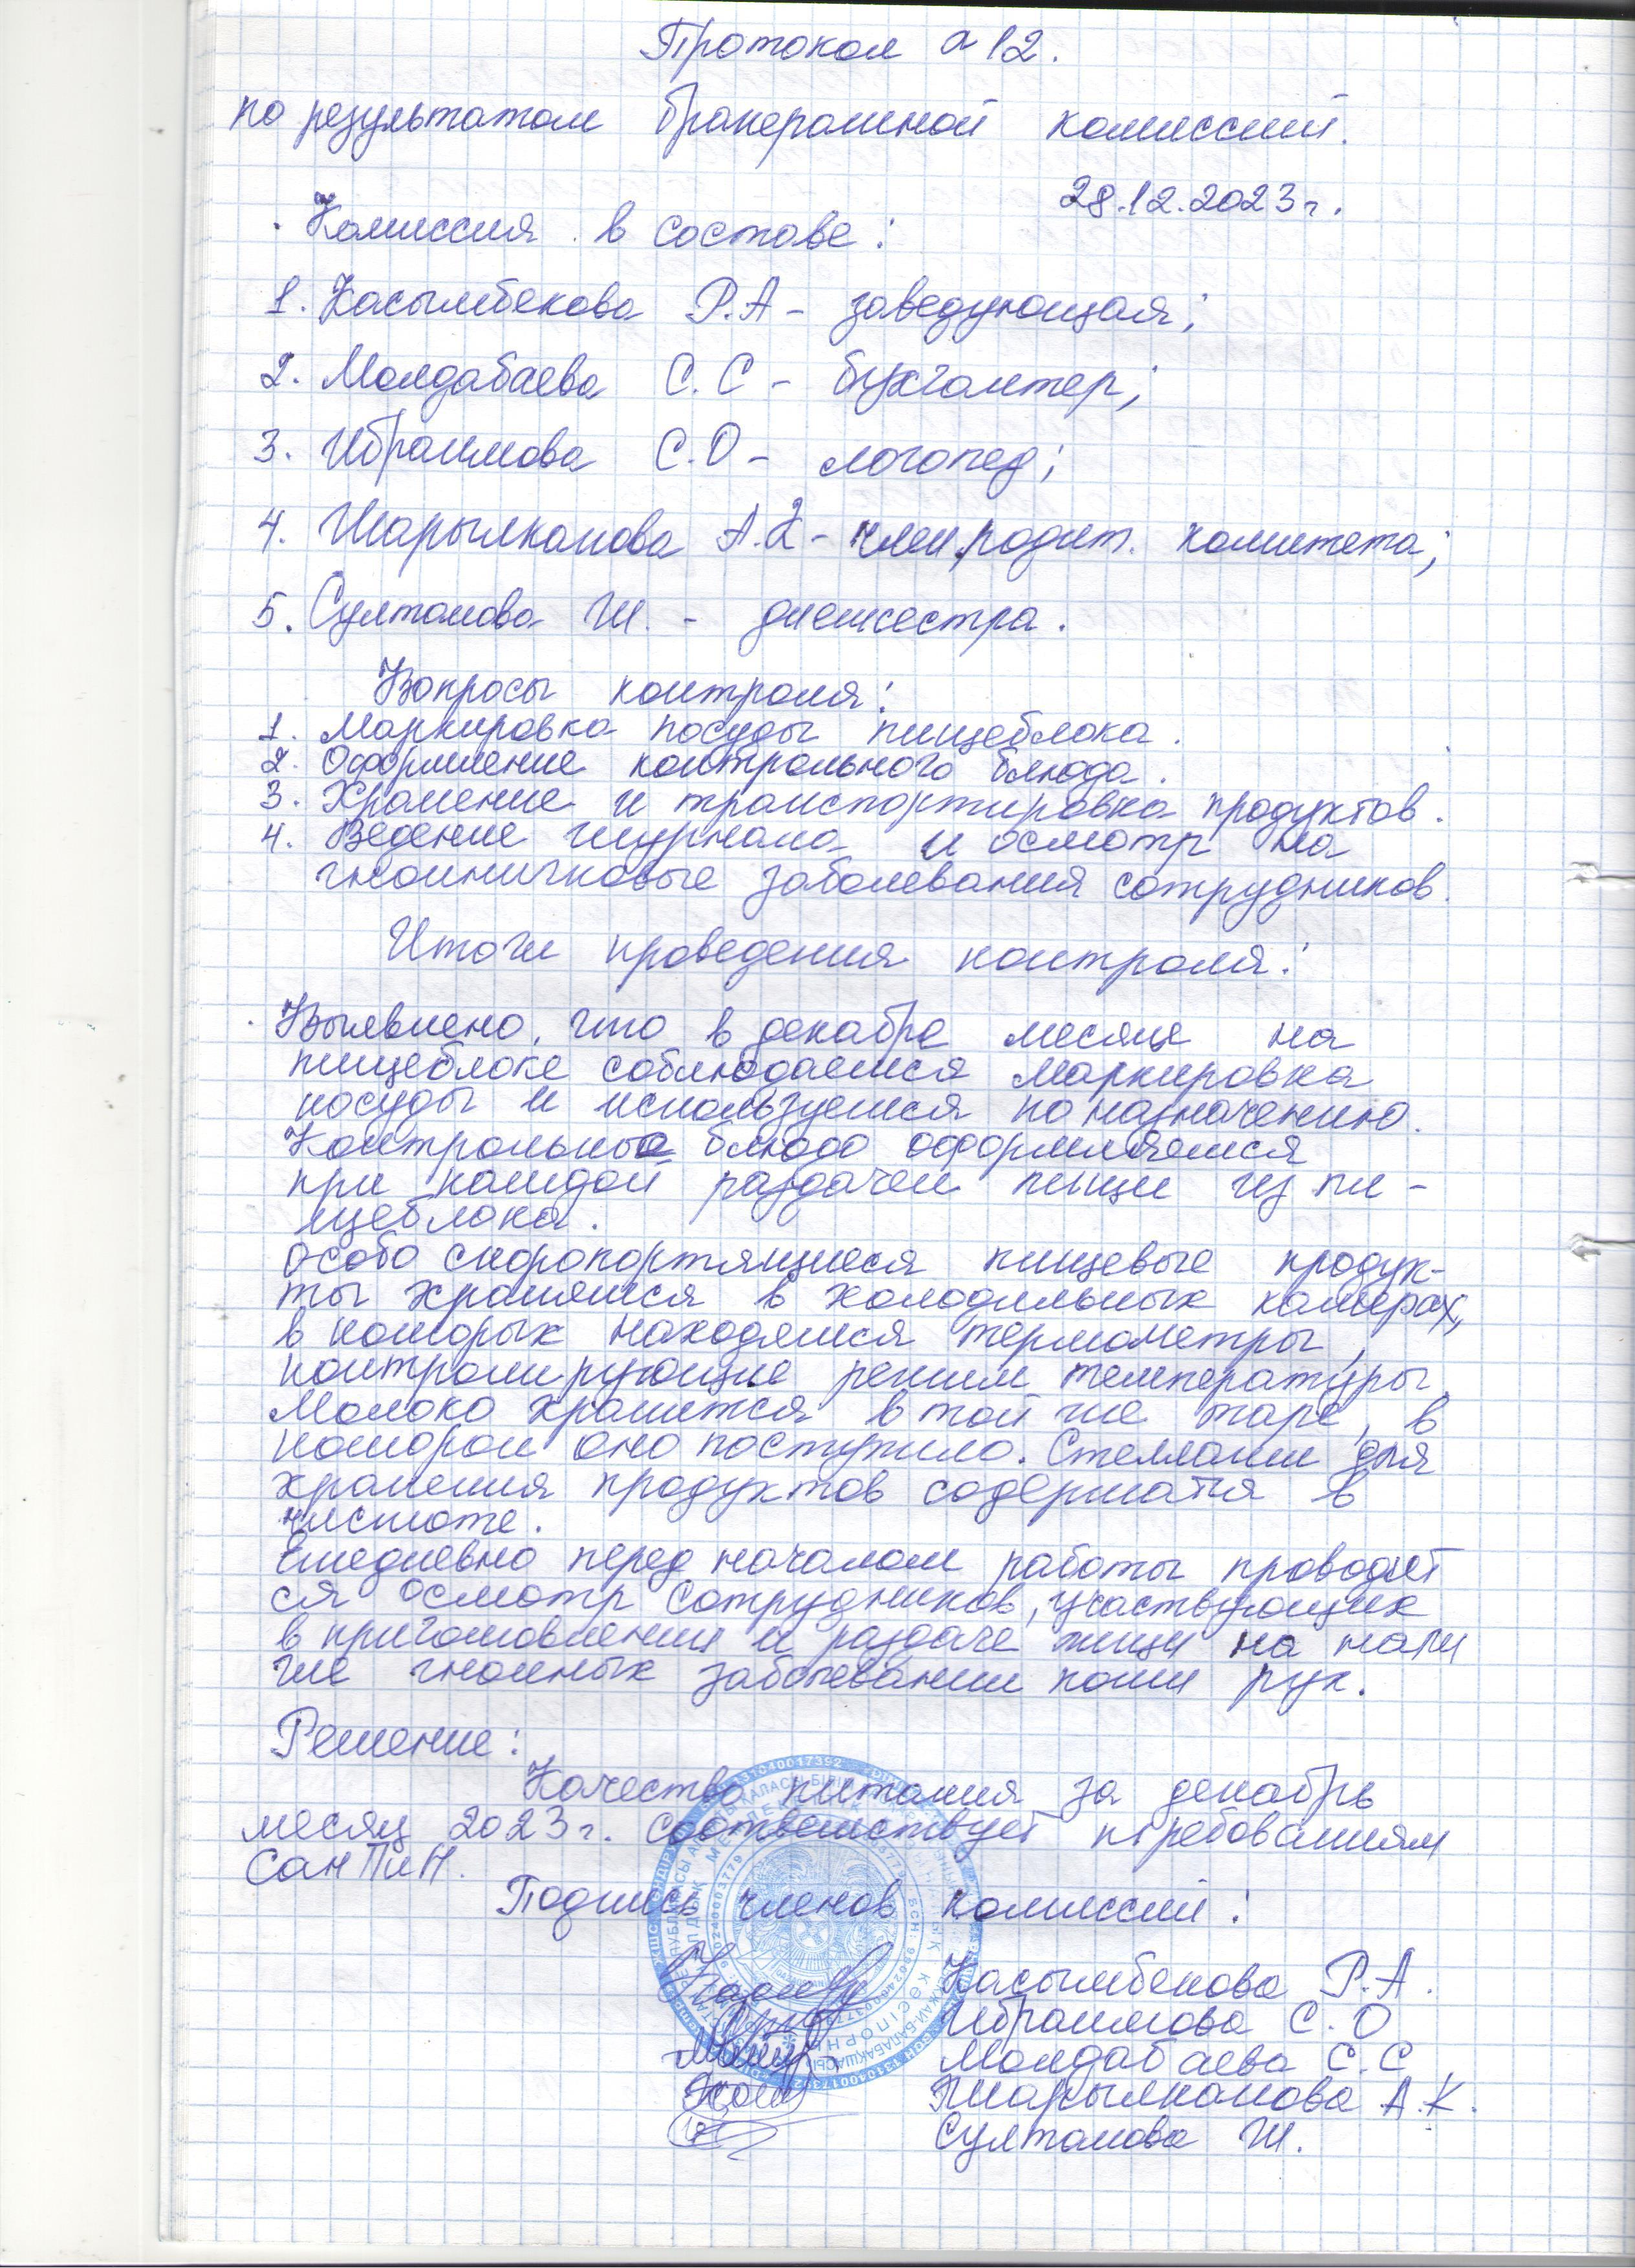 Протокол №12.
по результатам бракеражной комиссий.
28.12.2023г.
Комиссия в составе:
1. Касымбекова Р.А - заведующая;
2. Молдабаева С.С - бухгалтер;
3. Ибраимова С.О - логопед;
4. Шарылканова А.К - член родит. комитета;
5. Султанова Ш. - диетсестра.
Вопросы контроля:
1. Маркировка посуды пищеблока.
2. Оформление контрольного блюда.
3. Хранение и транспортировка продуктов.
4. Ведение журнала и осмотр на
гнойничковые заболевания сотрудников.
Итоги проведения контроля:
Выявлено, что в декабре месяце на
пищеблоке соблюдается маркировка
посуды и используется по назначению.
Контрольные блюдо оформляется
при каждой раздачей пищи из пи-
щеблока.
Особо скоропортящиеся пищевые продук-
ты хранятся в холодильных камерах,
в которых находятся термометры,
контролирующие режим температуры.
Молоко хранится в той же таре, в
которой оно поступило. Стеллажи для
хранения продуктов содержатся в
чистоте.
Ежедневно перед началом работы проводит
ся осмотр сотрудников, участвующих
в приготовлении и раздаче пищи на нали
чие гнойных заболеваний кожи рук.
Решение:
Качество питания за декабрь
месяц 2023г. соответствует требованиям
СанПиН.
Подпись членов комиссий:
Касымбекова Р.А.
Ибраимова С.О
Молдабаева С.С
Шарылканова А.К.
Султанова Ш.